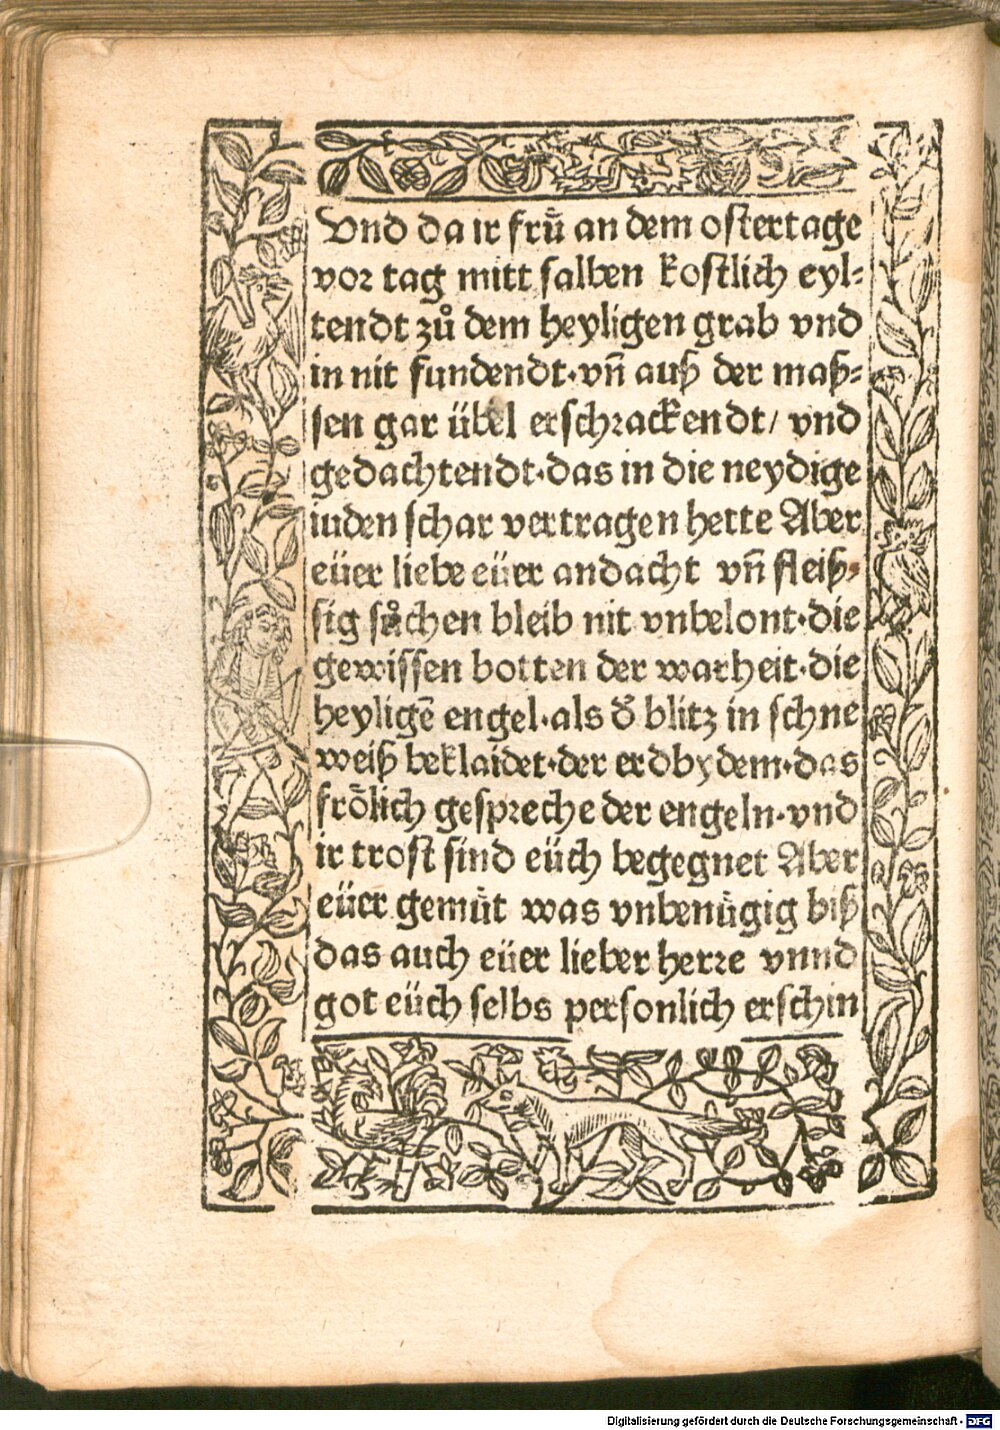 Vnd da ir frü an dem ostertage
vor tag mitt salben kostlich eyl⸗
tendt zů dem heyligen grab vnd
in nit fundendt·vñ auß der maß⸗
sen gar übel erschrackendt/ vnd
gedachtendt·das in die neydige
iuden schar vertragen hette Aber
eüer liebe eüer andacht vñ fleiß⸗
sig sůchen bleib nit vnbelont·die
gewissen botten der warheit·die
heyligē engel·als d̄ blitz in schne
weiß beklaidet·der erdbydem·das
frölich gespreche der engeln·vnd
ir trost sind eüch begegnet Aber
eüer gemüt was vnbenügig biß
das auch eüer lieber herre vnnd
got eüch selbs personlich erschin
Digitalisierung gefördert durch die Deutsche Forschungsgemeinschaft - DFG